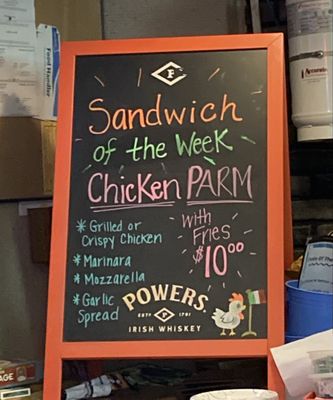 Food Handler
F
Sandwich
of the Week
Chicken PARM
* Grilled or
Crispy Chicken
* Marinara
* Mozzarella
* Garlic
Spread
with
Fries
$10.00
POWERS®
ESTD F 1791
IRISH WHISKEY